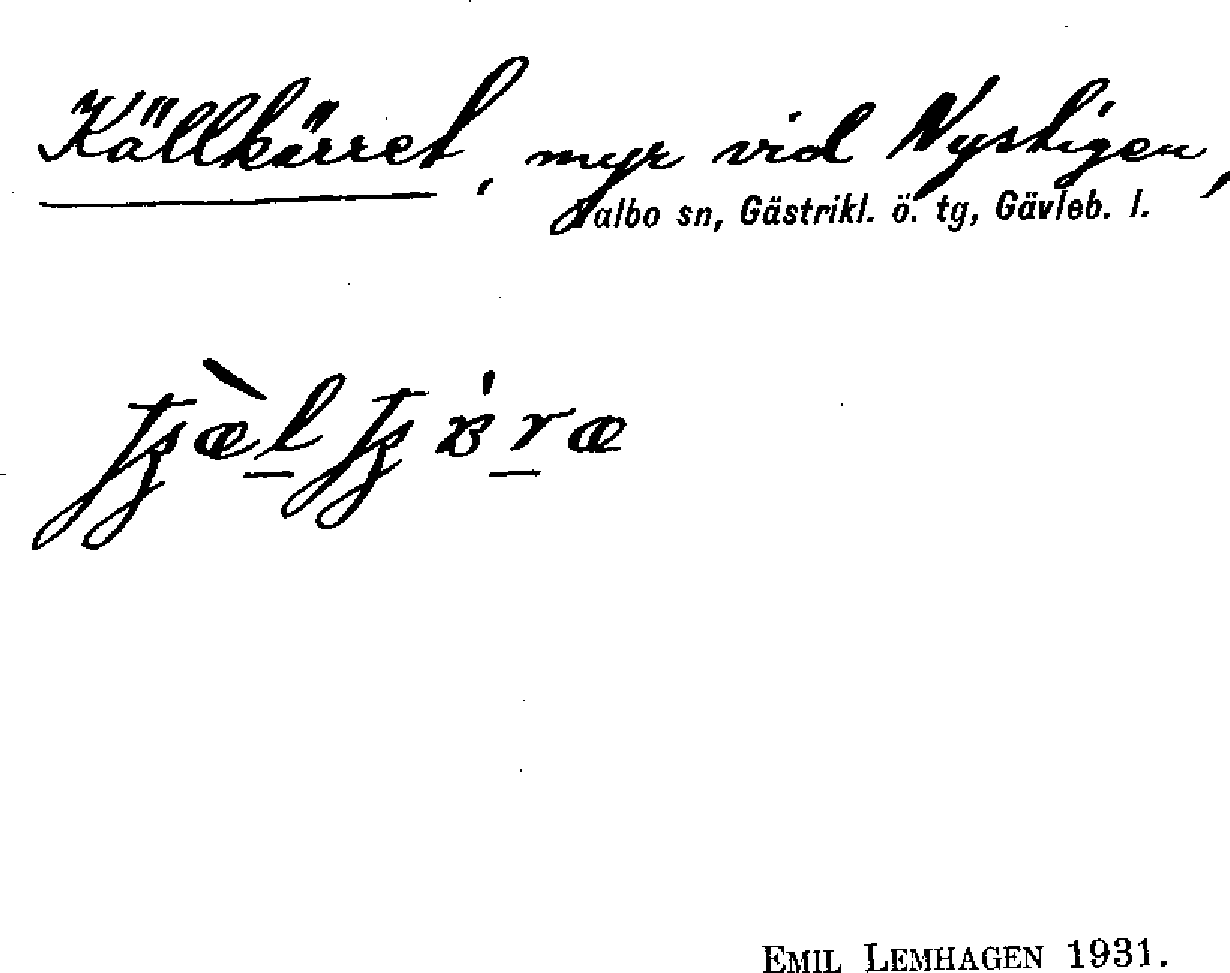 Källkärret, myr vid Nystigen,
Valbo sn, Gästrikl. ö. tg, Gävleb. l.
EMIL LEMHAGEN 1931.